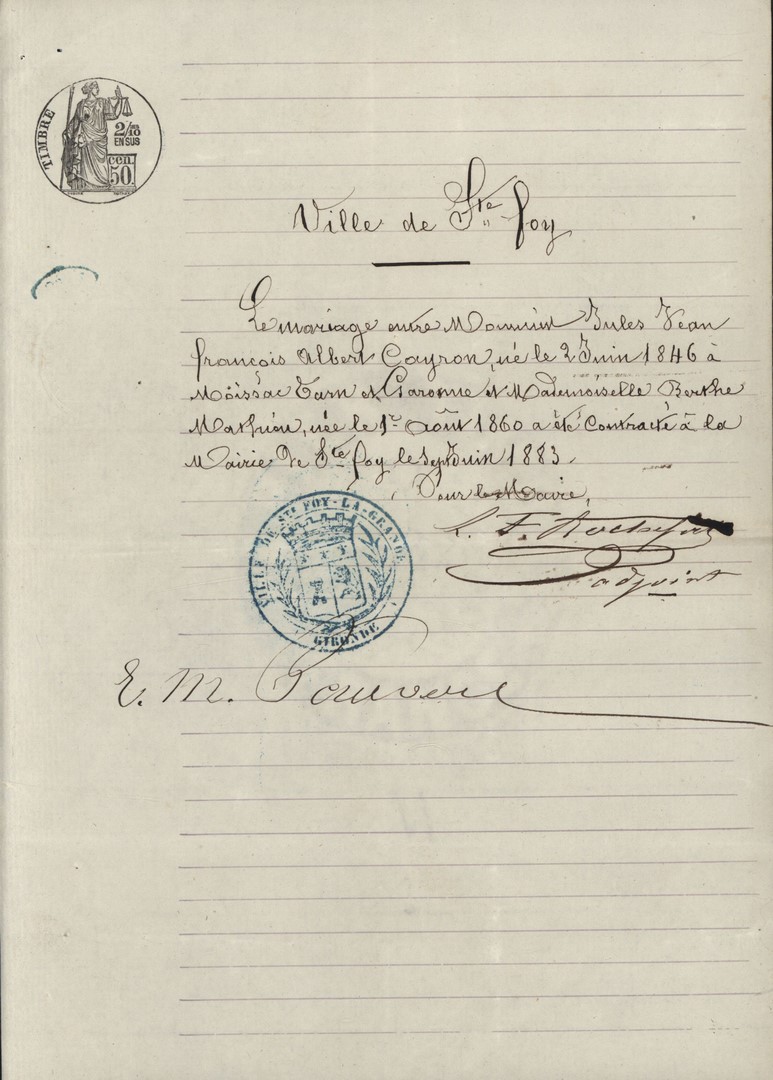 TIMBRE
2/10
EN SUS
cen.
50
Ville de Ste foy
Le mariage entre Monsieur Jules Jean
françois Albert Cayron, né le 2 Juin 1846 à
Moissac Tarn et Garonne et Mademoiselle Berthe
Mathieu, née le 1er Août 1860 a été Contracté à la
Mairie de Ste foy le sept Juin 1883.
Pour le Maire,
adjoint
VILLE DE STE FOY-LA-GRANDE
GIRONDE
E. M.